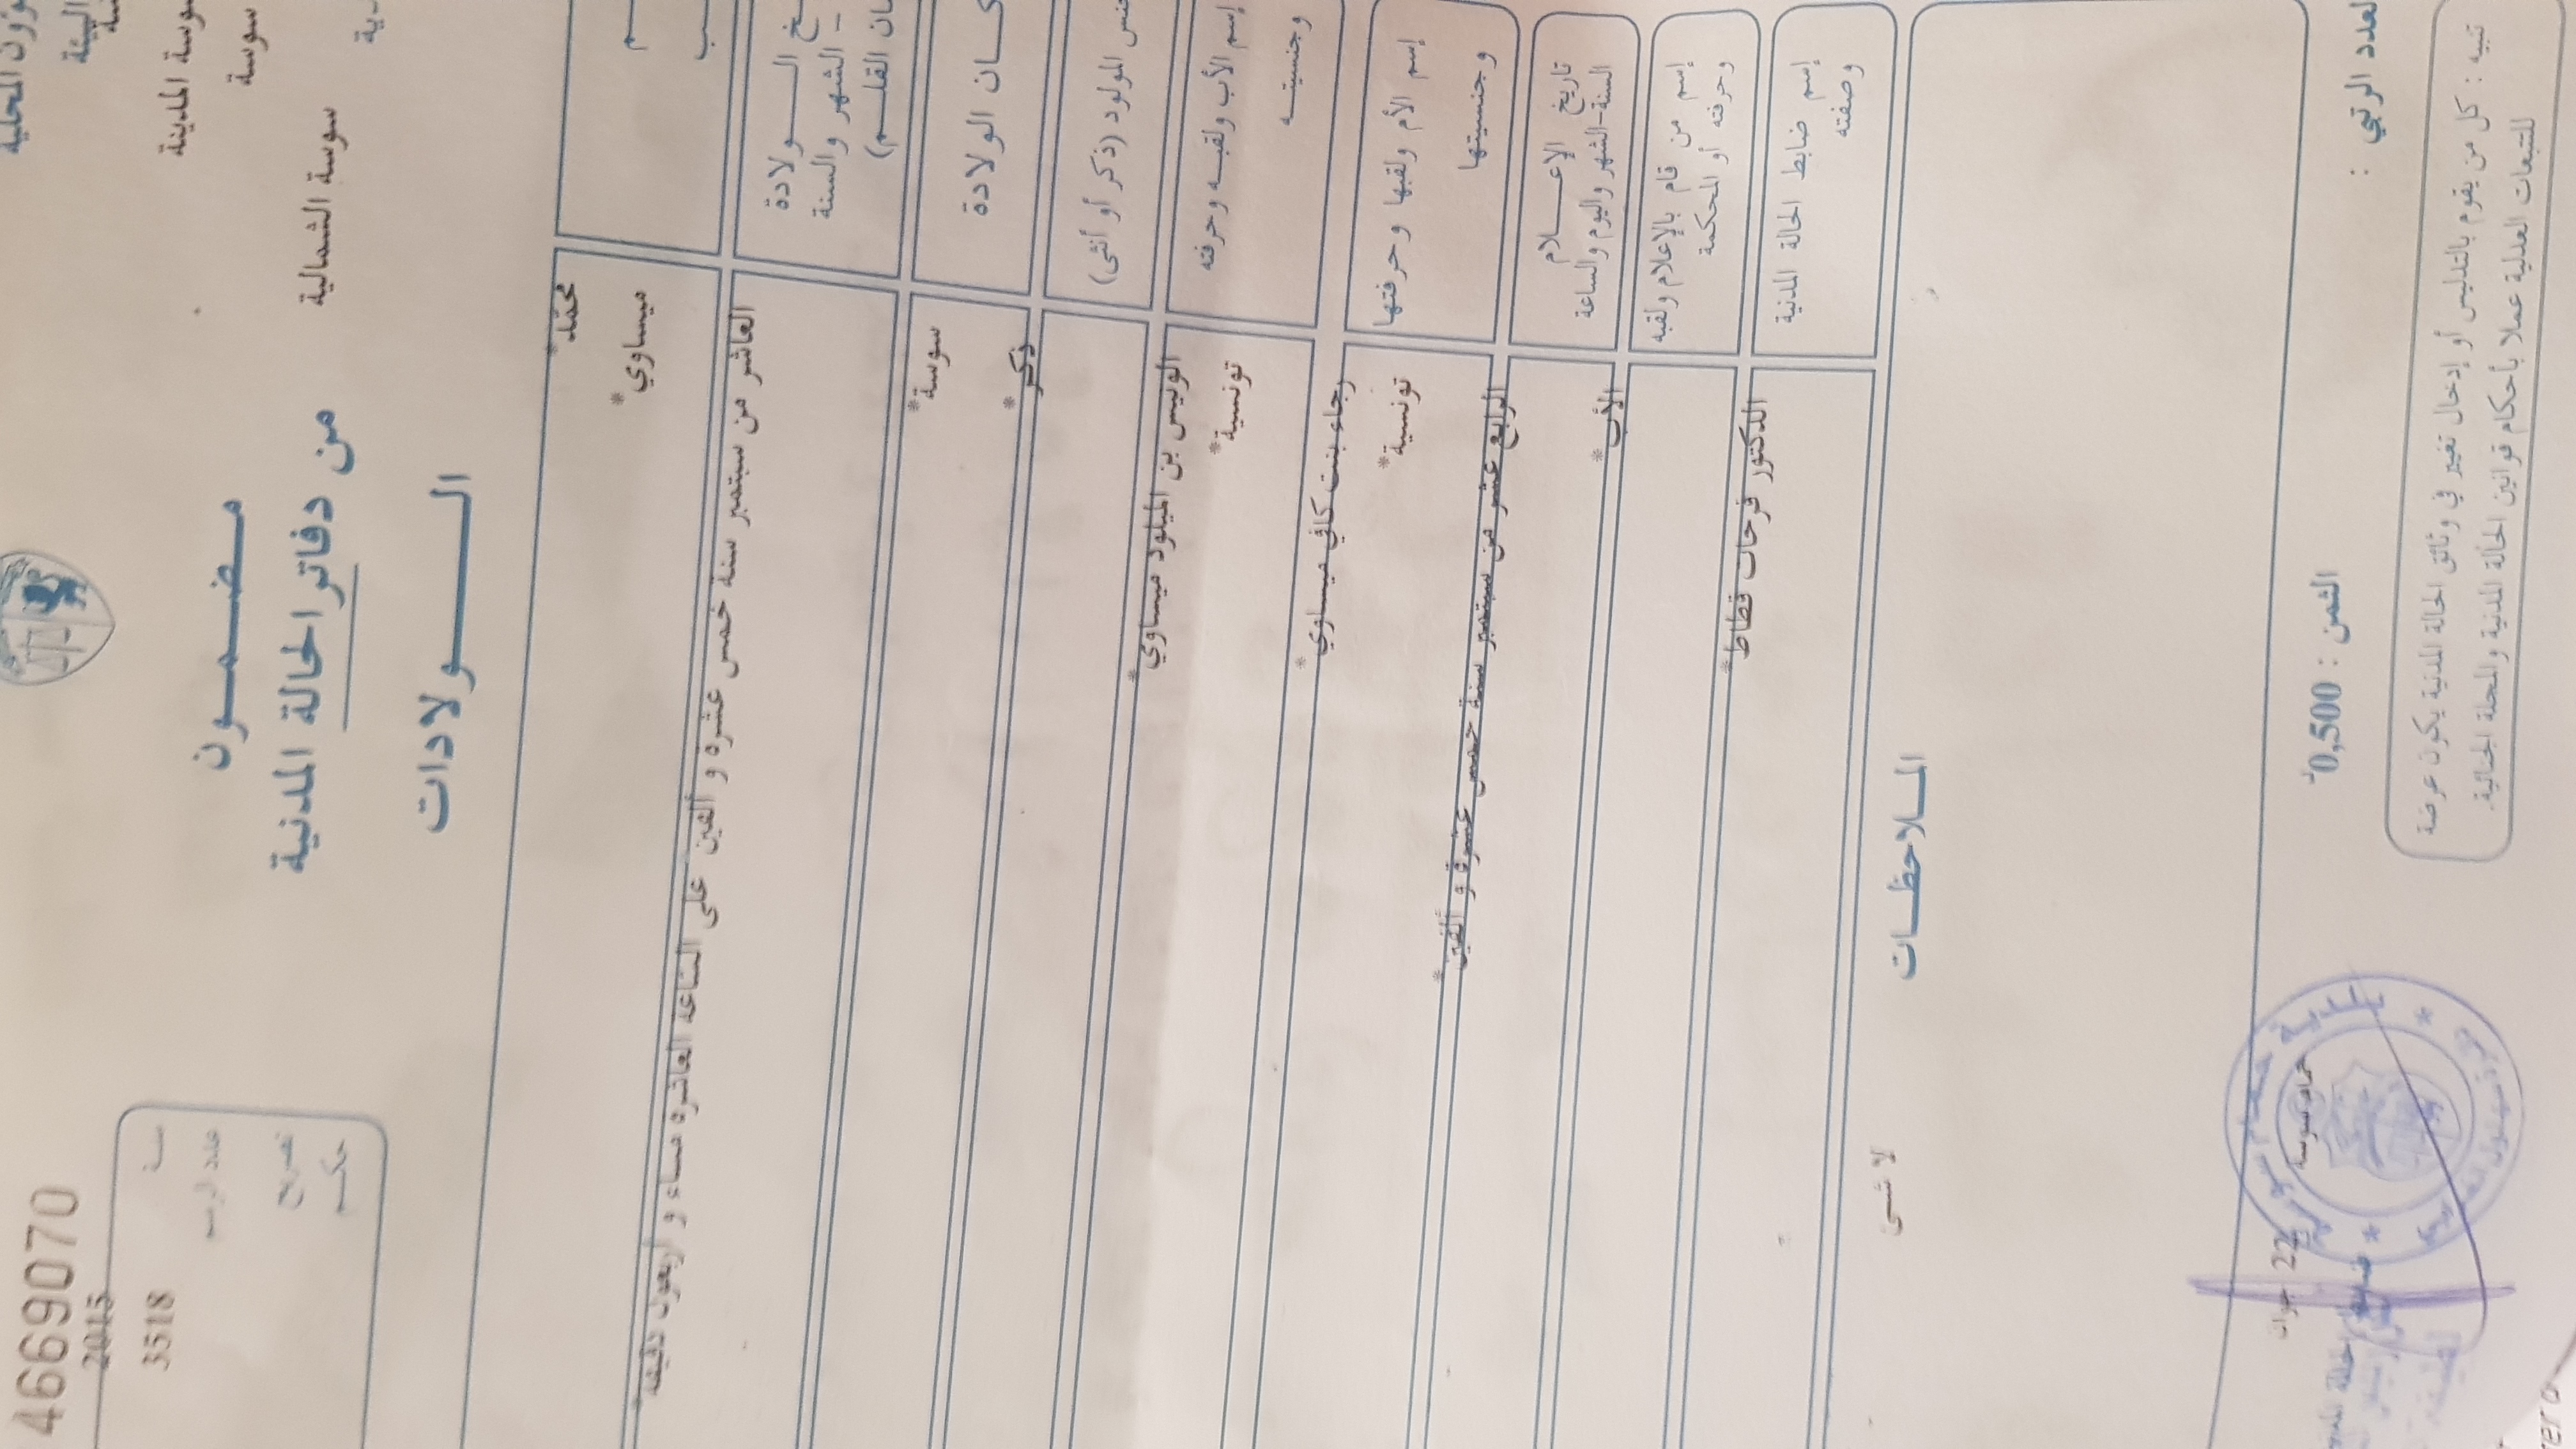 ؤون المحلية
البيئة
سوسة المدينة
سوسة
سوسة الشمالية
دية
4669070
2015
3518
سنة
عدد الرسم
تصريح
حكم
مضمون
من دفاتر الحالة المدنية
الولادات
محمّد*
ميساوي*
الولادة
الشهر والسنة
ان القلم)
العاشر من سبتمبر سنة خمس عشرة و ألفين على الساعة العاشرة مساء و أربعون دقيقة*
كان الولادة
سوسة*
نس المولود (ذكر أو أنثى)
ذكر*
إسم الأب ولقبه وحرفته
وجنسيته
الونيس بن الميلود ميساوي*
تونسية*
إسم الأم ولقبها وحرفتها
وجنسيتها
رجاء بنت كافي ميساوي*
تونسية*
تاريخ الإعلام
السنة-الشهر واليوم والساعة
الرابع عشر من سبتمبر سنة خمس عشرة و ألفين*
إسم من قام بالإعلام ولقبه
وحرفته أو المحكمة
الأب*
إسم ضابط الحالة المدنية
وصفته
الدكتور فرحات قطاط*
الملاحظات
لا شيئ
حمام سوسة
22 جوان
ضابط الحالة المدنية
العدد الرتبي :
الثمن : 0,500د
تنبيه : كل من يقوم بالتدليس أو إدخال تغيير في وثائق الحالة المدنية يكون عرضة
للتتبعات العدلية عملا بأحكام قوانين الحالة المدنية والمجلة الجنائية.